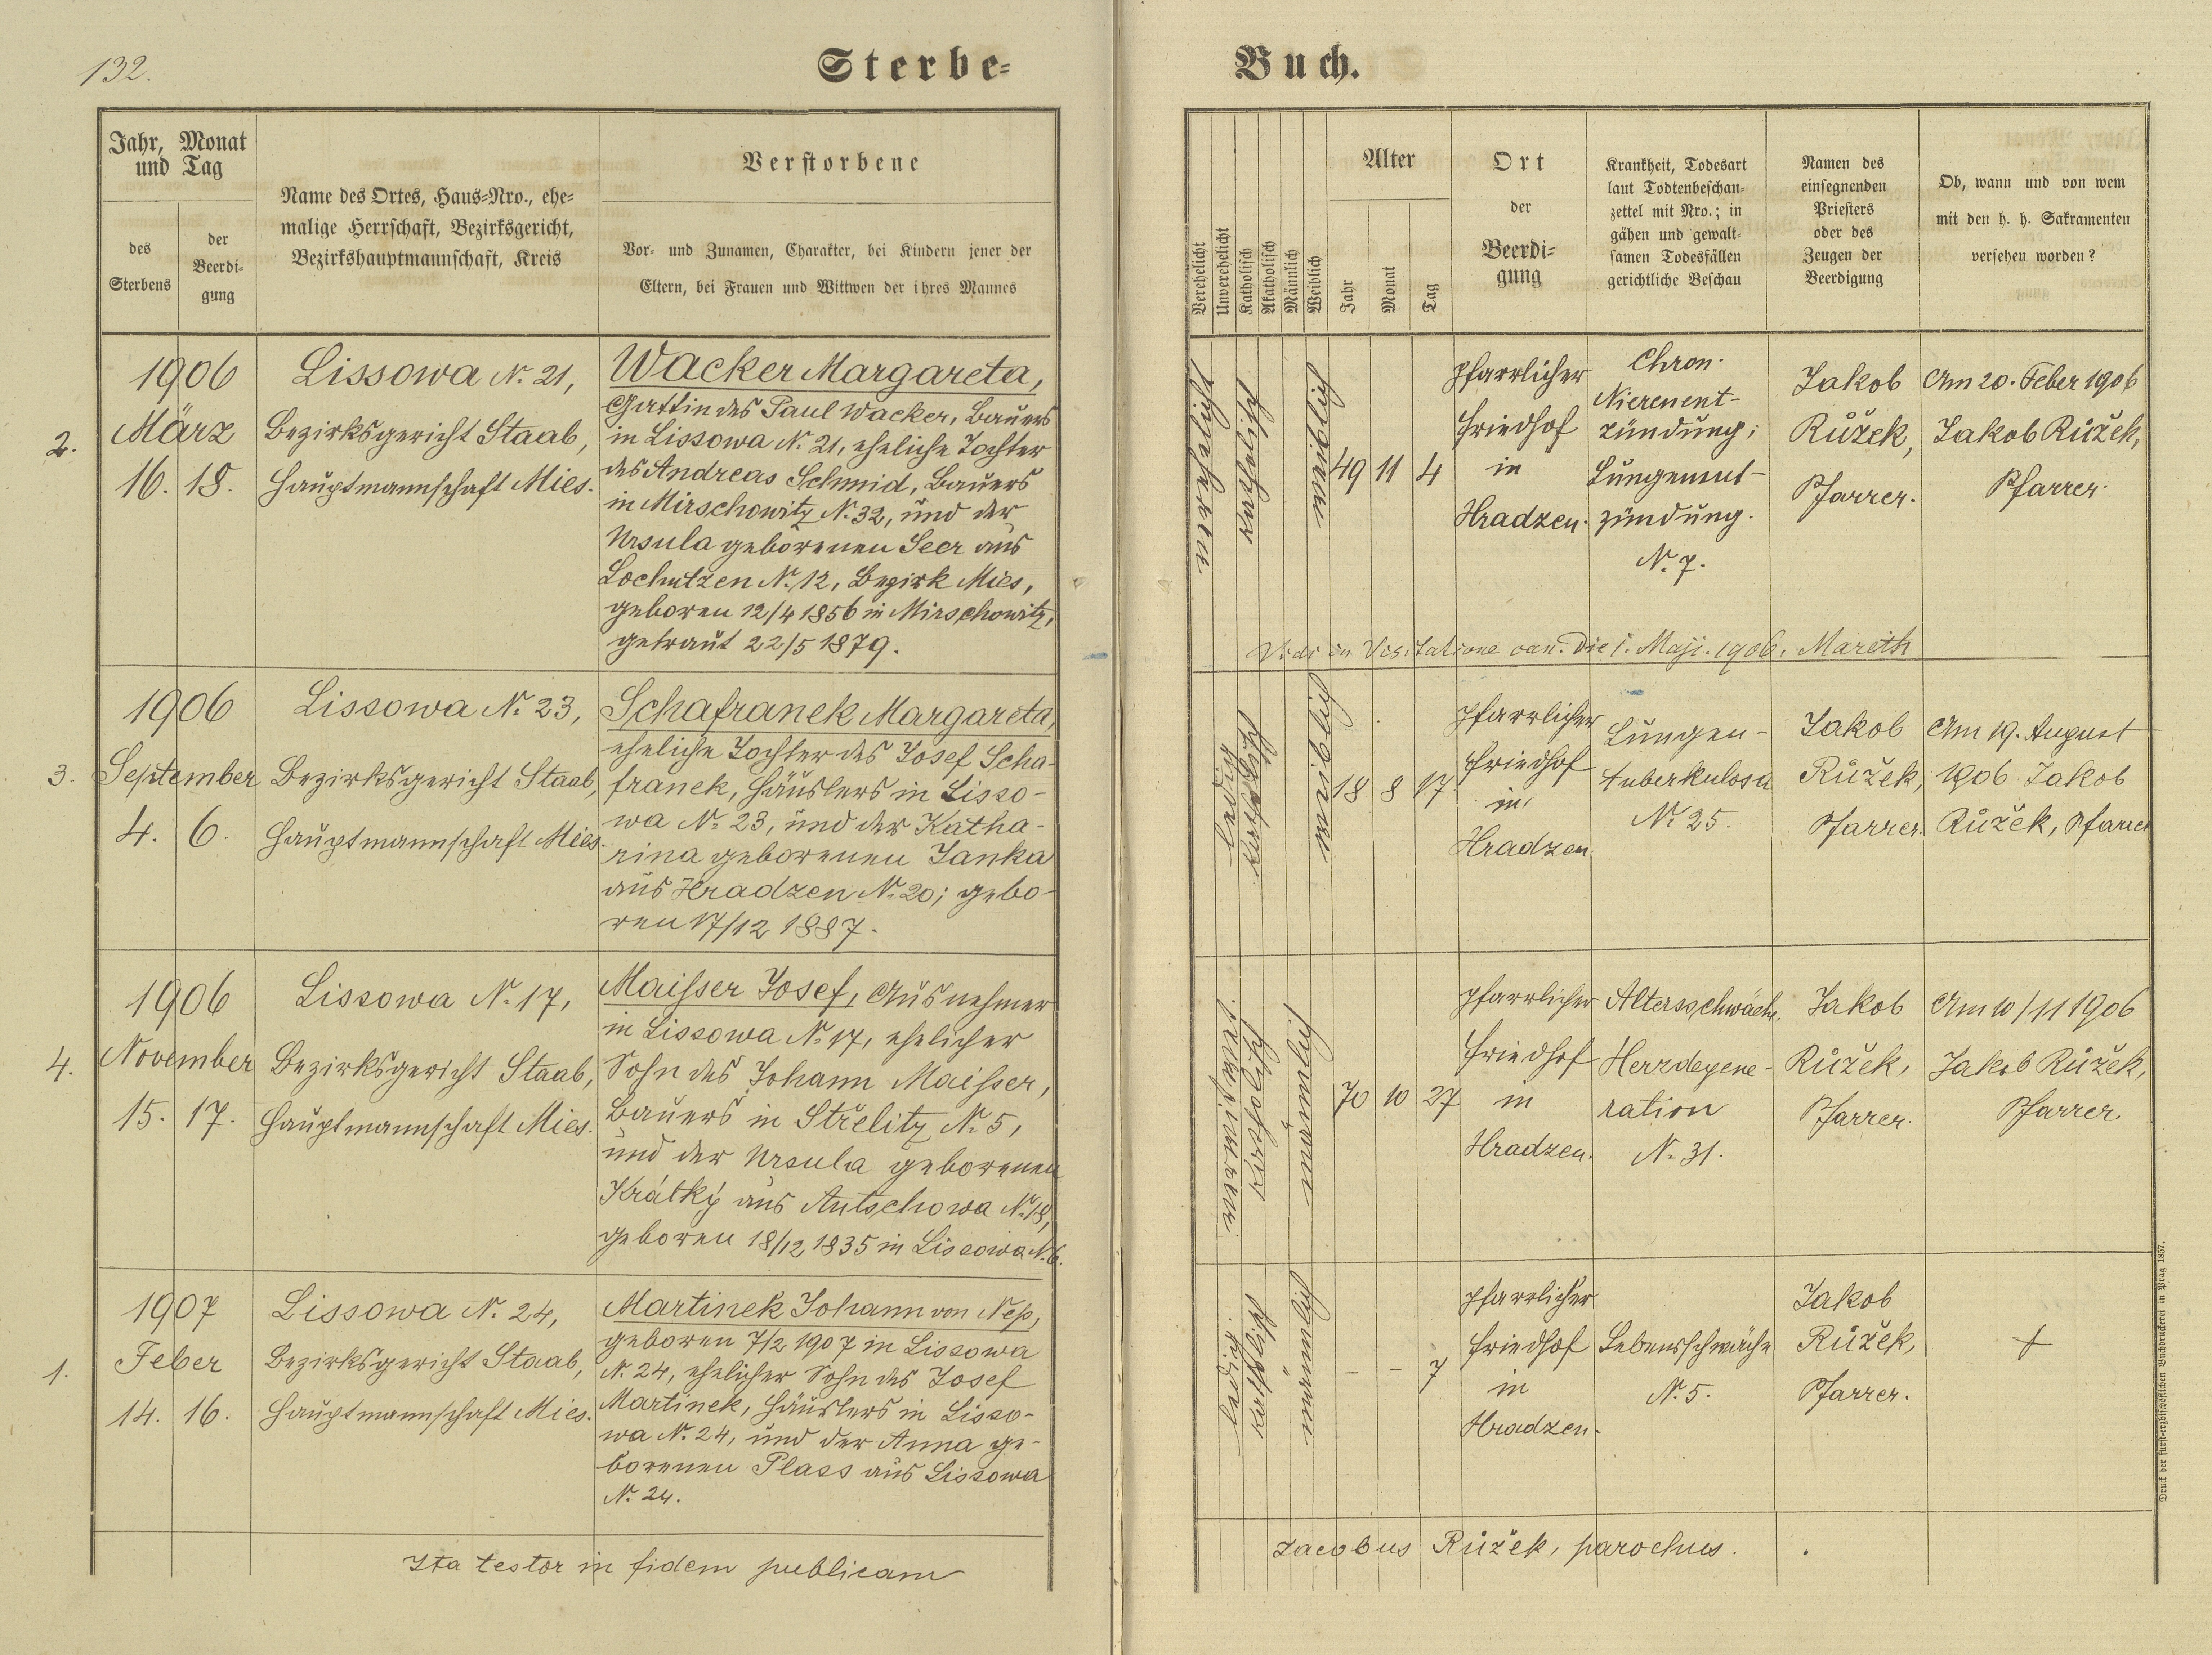 132.
Sterbe=
Buch.
Jahr, Monat
und Tag
des
Sterbens
der
Beerdi=
gung
Name des Ortes, Haus=Nro., ehe=
malige Herrschaft, Bezirksgericht,
Bezirkshauptmannschaft, Kreis
Verstorbene
Vor= und Zunamen, Charakter, bei Kindern jener der
Eltern, bei Frauen und Wittwen der ihres Mannes
Verehelicht
Unverehelicht
Katholisch
Akatholisch
Männlich
Weiblich
Alter
Jahr
Monat
Tag
Ort
der
Beerdi=
gung
Krankheit, Todesart
laut Todtenbeschau=
zettel mit Nro.; in
gähen und gewalt=
samen Todesfällen
gerichtliche Beschau
Namen des
einsegnenden
Priesters
oder des
Zeugen der
Beerdigung
Ob, wann und von wem
mit den h. h. Sakramenten
versehen worden?
2.
1906
März
16. 18.
Lissowa N. 21,
Bezirksgericht Staab,
Hauptmannschaft Mies.
Wacker Margareta,
Gattin des Paul Wacker, Bauers
in Lissowa N. 21, eheliche Tochter
des Andreas Schmid, Bauers
in Mirschowitz N. 32, und der
Ursula geborenen Seer aus
Lochutzen N. 12, Bezirk Mies,
geboren 12/4 1856 in Mirschowitz,
getraut 22/5 1879.
verehelicht
katholisch
weiblich
49 11 4
Pfarrlicher
Friedhof
in
Hradzen.
Chron.
Nierenent-
zündung;
Lungenent-
zündung.
N. 7.
Jakob
Růžek,
Pfarrer.
Am 20. Feber 1906
Jakob Růžek,
Pfarrer.
Vidi in Visitatione can. die 1. Maji. 1906. Mareth
3.
1906
September
4. 6.
Lissowa N. 23,
Bezirksgericht Staab,
Hauptmannschaft Mies.
Schafranek Margareta,
eheliche Tochter des Josef Scha-
franek, Häuslers in Lisso-
wa N. 23, und der Katha-
rina geborenen Janka
aus Hradzen N. 20; gebo-
ren 17/12 1887.
ledig
katholisch
weiblich
18 8 17
Pfarrlicher
Friedhof
in
Hradzen
Lungen-
tuberkulose
N. 25.
Jakob
Růžek,
Pfarrer.
Am 19. August
1906 Jakob
Růžek, Pfarrer
4.
1906
November
15. 17.
Lissowa N. 17,
Bezirksgericht Staab,
Hauptmannschaft Mies.
Maisser Josef, Ausnehmer
in Lissowa N. 17, ehelicher
Sohn des Johann Maisser,
Bauers in Střelitz N. 5,
und der Ursula geborenen
Krátký aus Autschowa N. 18,
geboren 18/12 1835 in Lissowa N. 6.
verwitwet.
katholisch
männlich
70 10 27
Pfarrlicher
Friedhof
in
Hradzen.
Altersschwäche.
Herzdegene-
ration
N. 31.
Jakob
Růžek,
Pfarrer.
Am 10/11 1906
Jakob Růžek,
Pfarrer.
1.
1907
Feber
14. 16.
Lissowa N. 24,
Bezirksgericht Staab,
Hauptmannschaft Mies.
Martinek Johann von Nep,
geboren 7/2 1907 in Lissowa
N. 24, ehelicher Sohn des Josef
Martinek, Häuslers in Lisso-
wa N. 24, und der Anna ge-
borenen Plass aus Lissowa
N. 24.
ledig.
katholisch
männlich
– – 7
Pfarrlicher
Friedhof
in
Hradzen.
Lebensschwäche
N. 5.
Jakob
Růžek,
Pfarrer.
Ita testor in fidem publicam
Jacobus Růžek, parochus.
Druck der fürst=erzbischöflichen Buchdruckerei in Prag 1857.